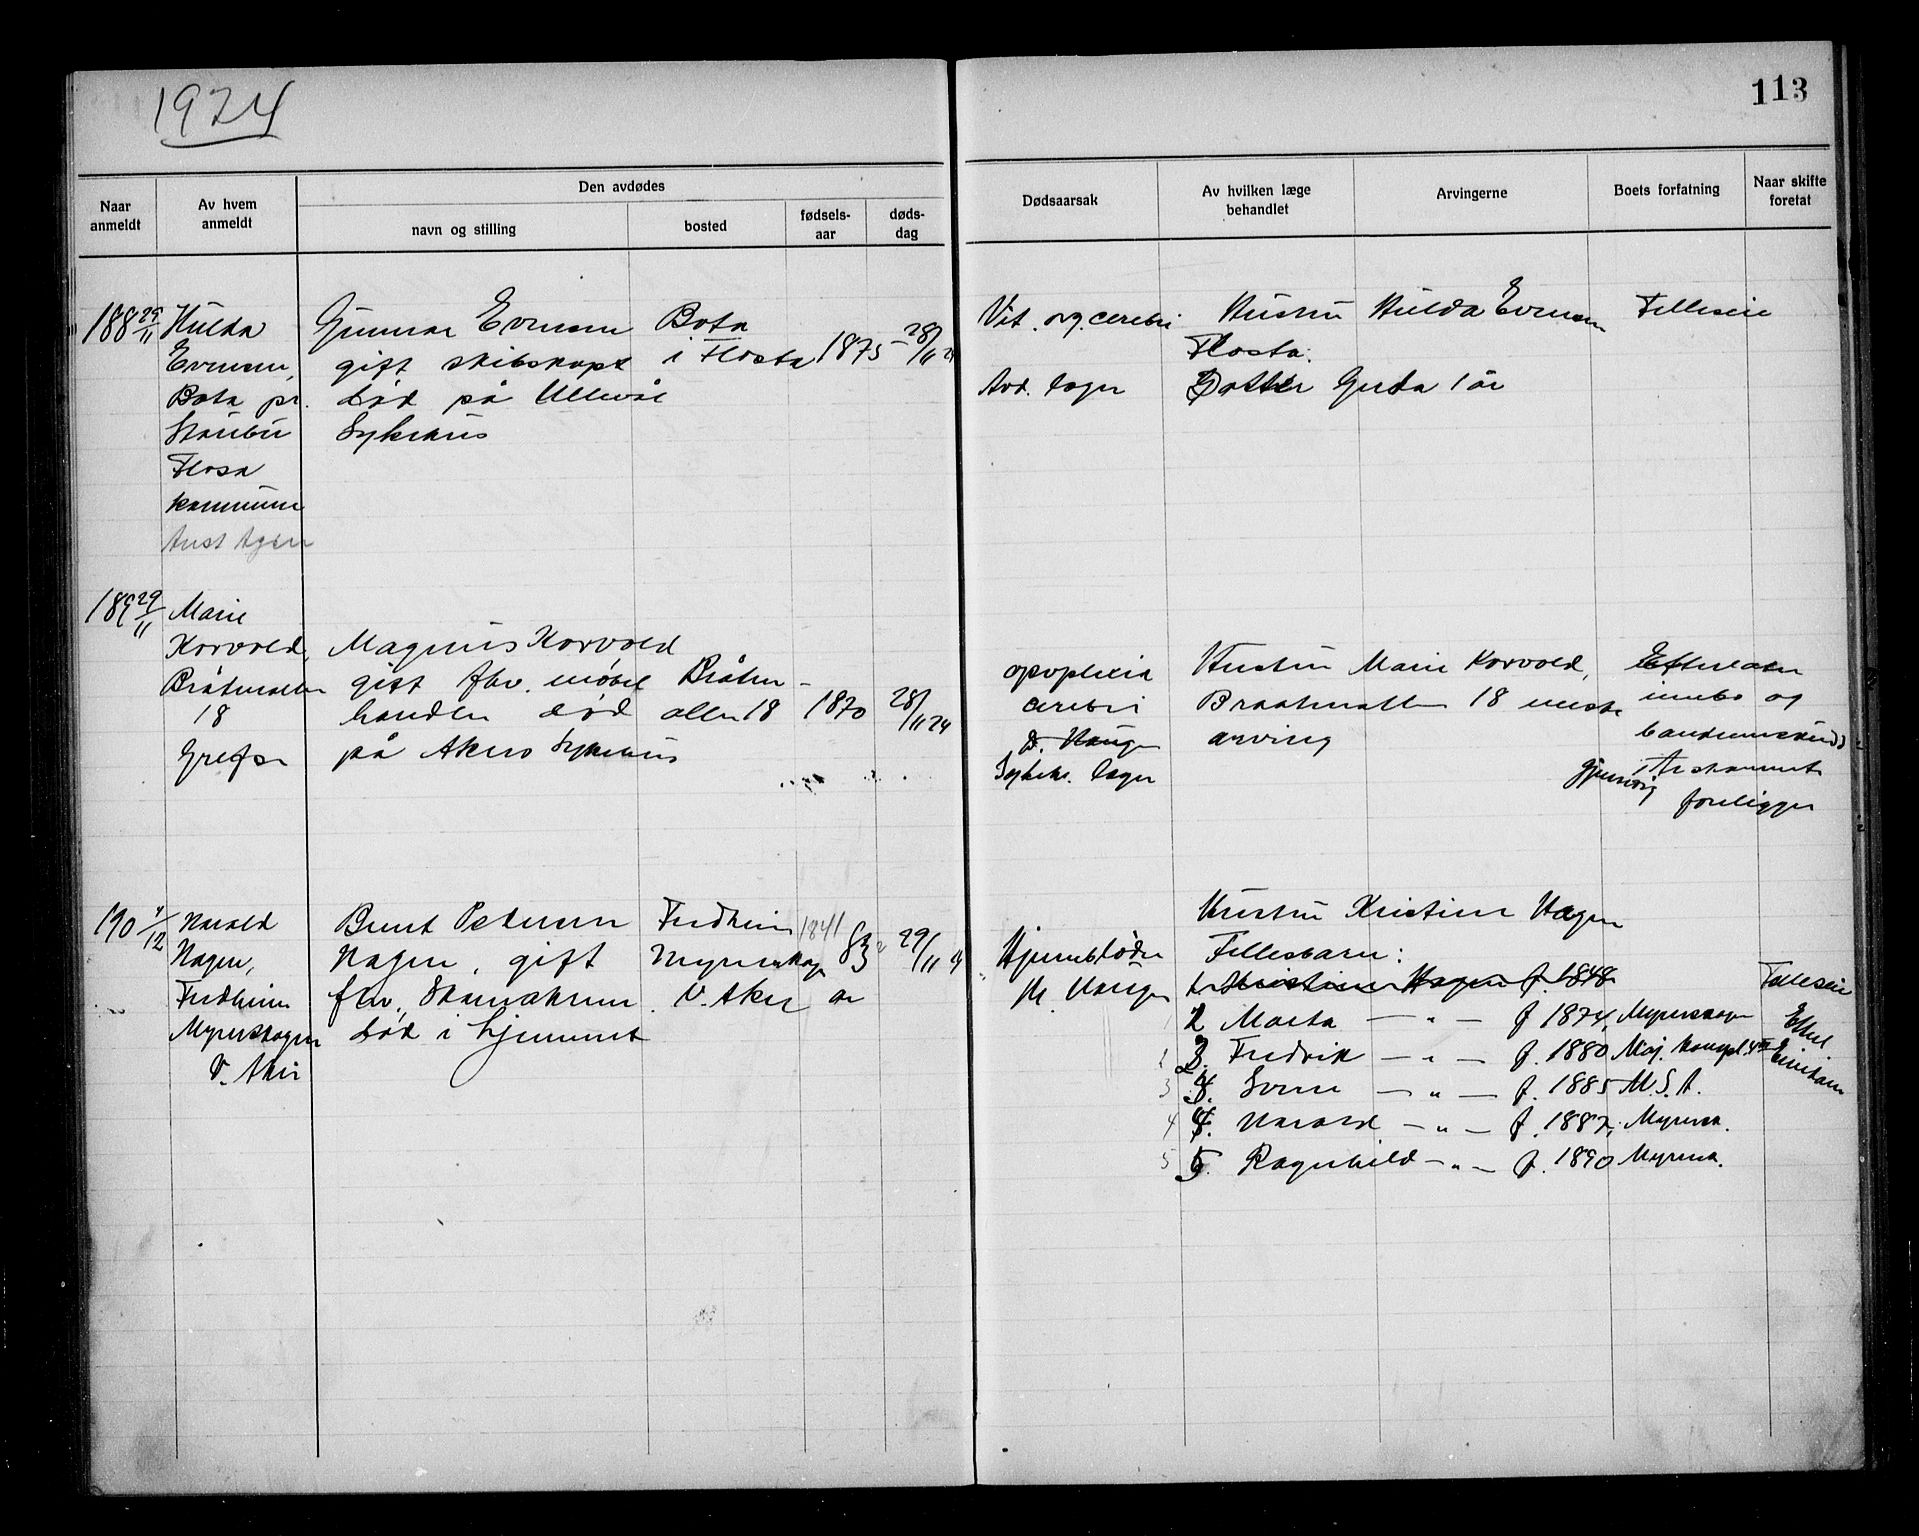 1924
113
Naar anmeldt
Av hvem anmeldt
Den avdødes
navn og stilling
bosted
fødsels-aar
døds-dag
Dødsaarsak
Av hvilken læge behandlet
Arvingerne
Boets forfatning
Naar skifte foretat
188 29/11
Hulda
Evensen,
Bota pr.
Staubø
Flosa
kommune
Aust Agder
Gunnar Evensen
gift skibskapt
død på Ullevål
Sykehus
Bota
i Flosta
1875
28/11 24
Vit. org. cerebri
Avd. læger
Hustru Hulda Evensen
Flosta.
Datter Gerda 1 år
Felleseie
189 29/11
Marie
Korvold,
Bråtenalleen
18
Grefsen
Magnus Korvold
gift fhv. møbel
handler død
på Akers Sykehus
Bråten-
alleen 18
1870
28/11 24
apoplexia
cerebri
D. Hauge
Sykeh. læger
Hustru Marie Korvold,
Braatenalleen 18 eneste
arving
Efterlater
innbo og
foreligger
190 4/12
Harald
Hagen,
Fredheim
Myrerskogen
V. Aker
Bernt Petersen
Hagen, gift
fhv.
død i hjemmet
Fredheim
Myrerskogen
V. Aker
1841
83
år
29/11 24
Hjerneblødn
Hauge
Hustru Kristine Hagen
Fellesbarn:
1. Kristine Hagen f. 1848
1 2 Marta — " — f 1874, Myrerskogen
2 3. Fredrik — " — f. 1880,
3 4. Sven — " — f. 1885 M.S.A.
4 5. Harald — " — f. 1887, Myrersk.
5 6. Ragnhild — " — f. 1890 Myrersk.
Fellesseie